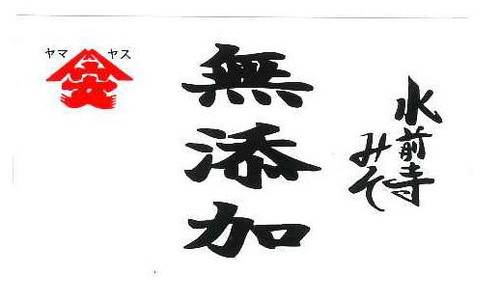 水前寺
みそ
無添加
ヤマヤス
安